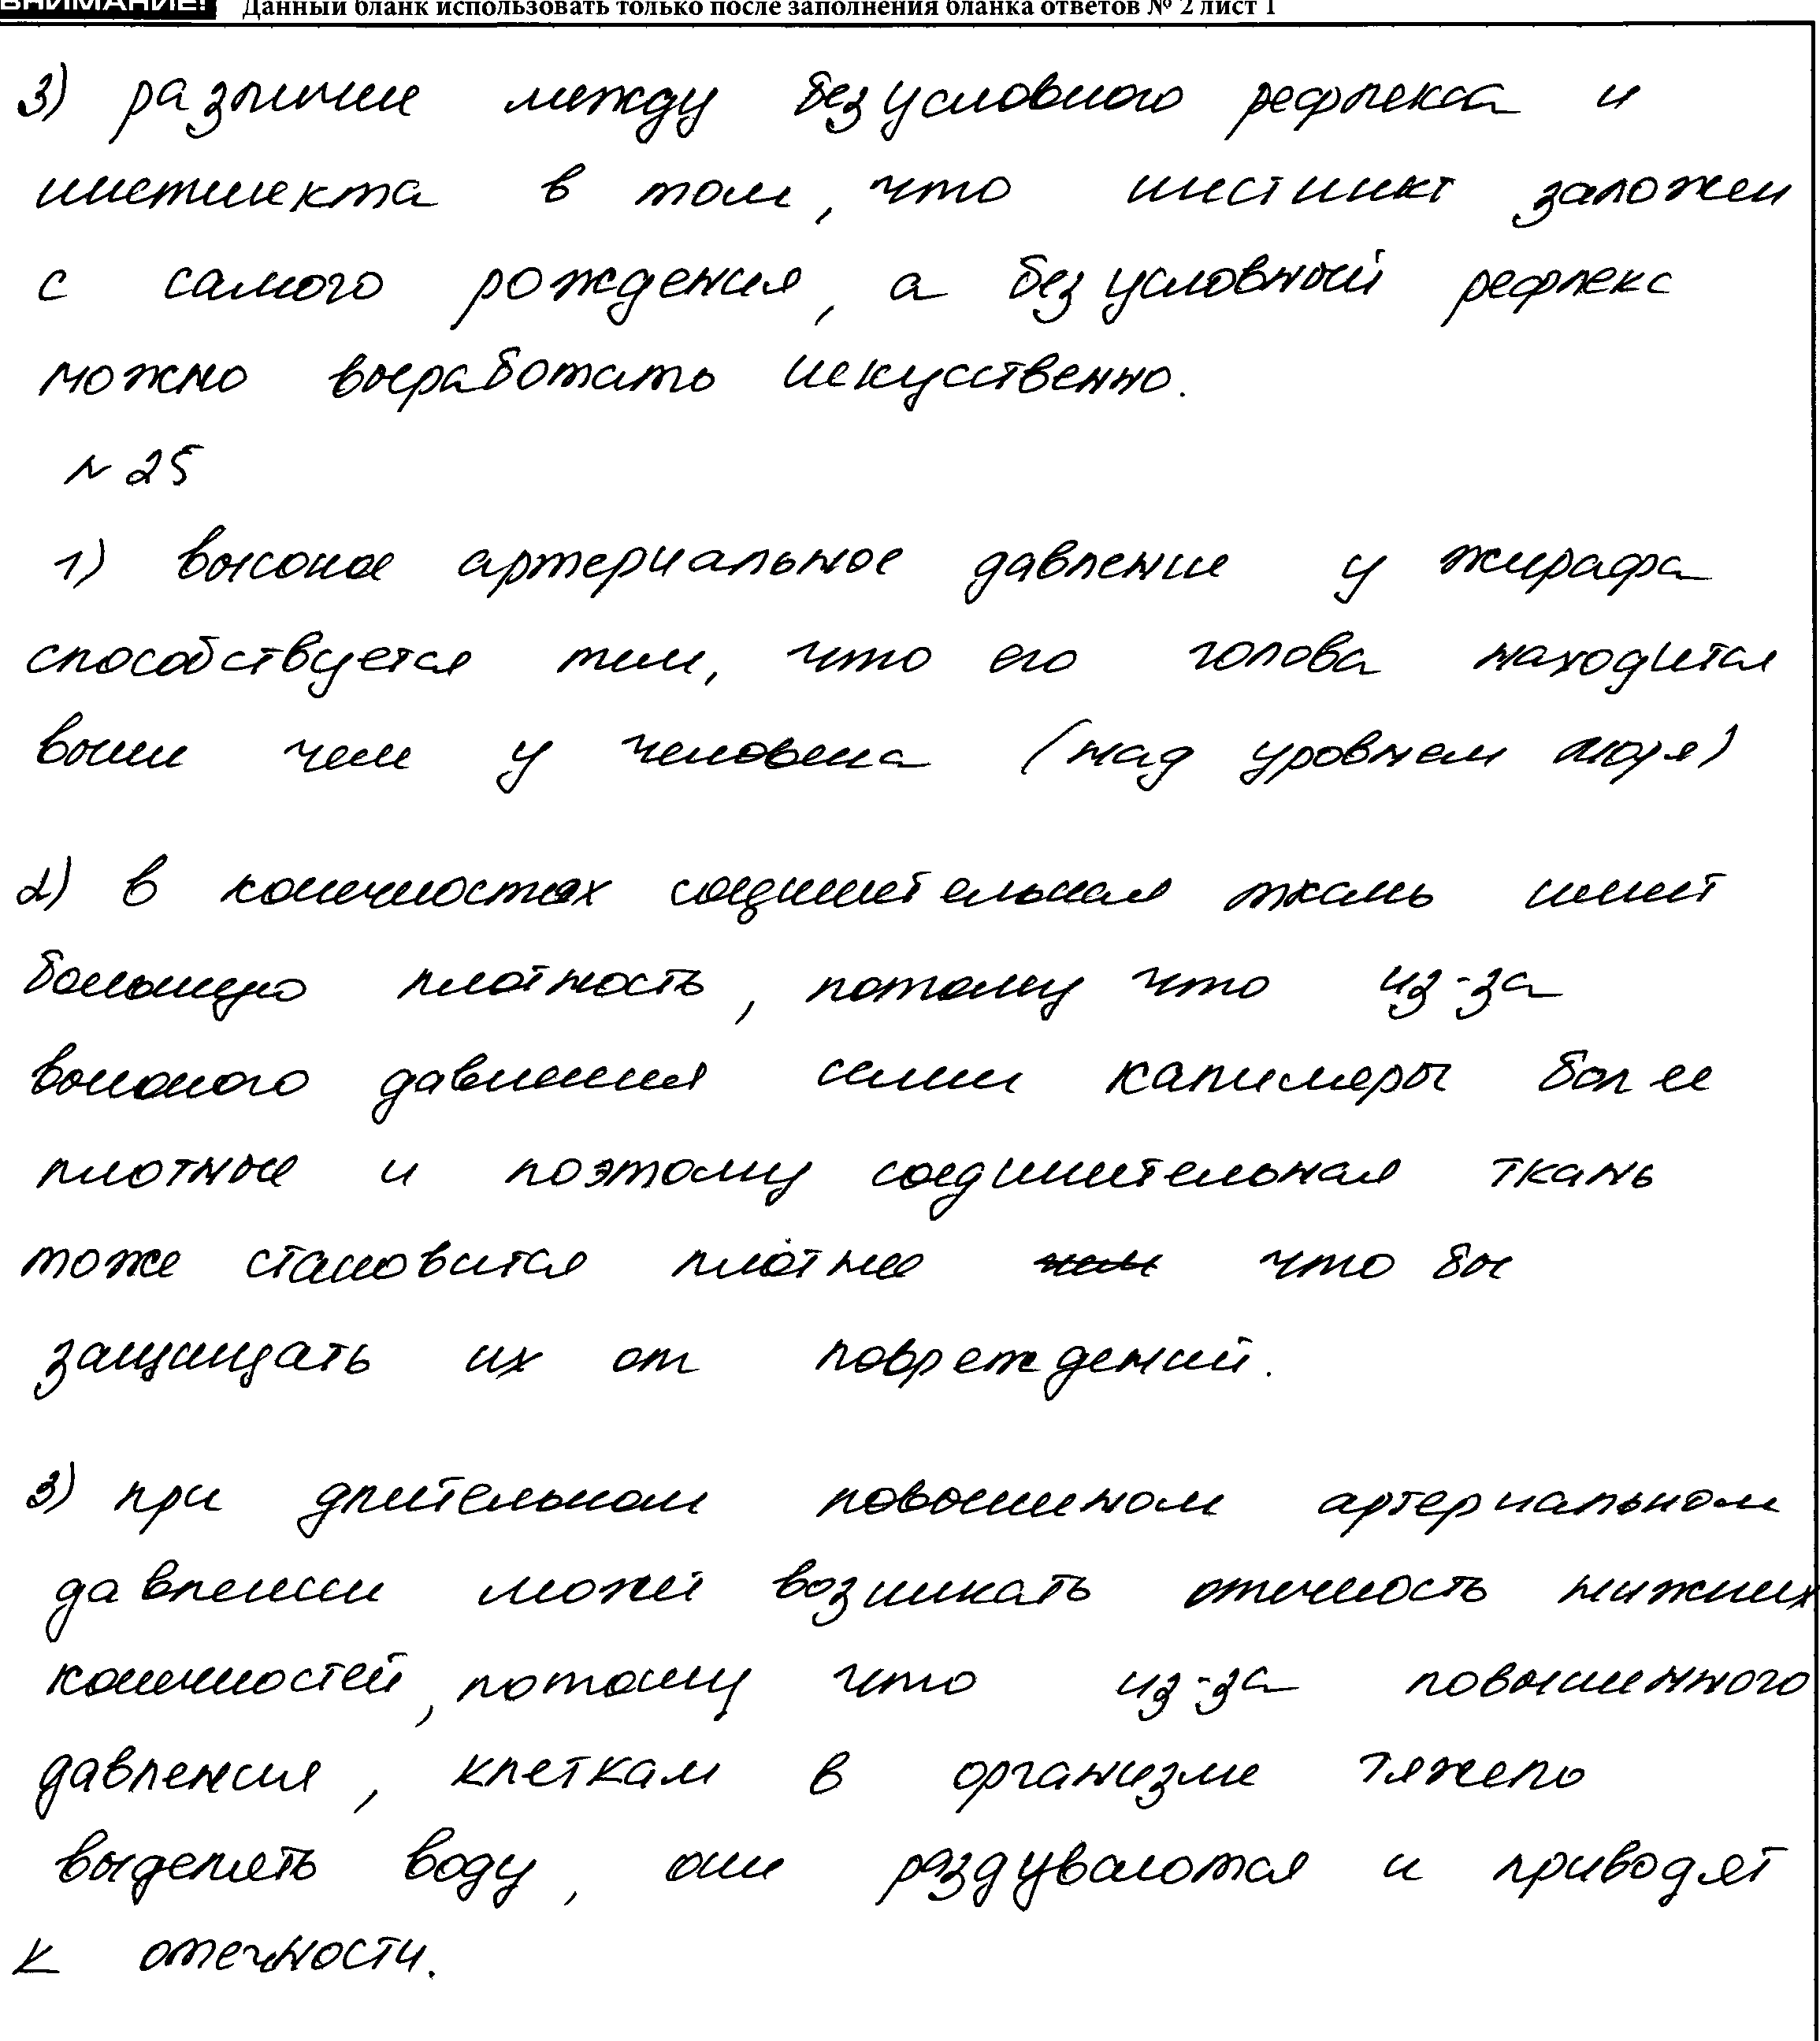 ВНИМАНИЕ! Данный бланк использовать только после заполнения бланка ответов № 2 лист 1
3) различие между безусловного рефлекса и
инстинкта в том, что инстинкт заложен
с самого рождения, а безусловный рефлекс
можно выработать искусственно.
№ 25
1) высокое артериальное давление у жирафа
способствуется тем, что его голова находится
выше чем у человека (над уровнем моря)
2) в конечностях соединительная ткань имеет
большую плотность, потому что из-за
высокого давления сами капилляры более
плотные и поэтому соединительная ткань
тоже становится плотнее что бы
защищать их от повреждений.
3) при длительном повышеном артериальном
давлении может возникать отечность нижних
конечностей, потому что из-за повышенного
давления, клеткам в организме тяжело
выделять воду, они раздуваются и приводят
к отечности.